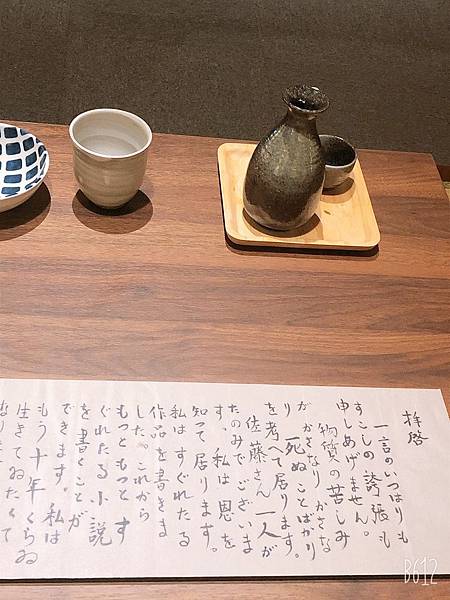 拝啓
一言のいつはりも
すこしの誇張も
申しあげません。
物質の苦しみ
がかさなりかさな
り死ぬことばかり
を考へて居ります。
佐藤さん一人が
たのみでございま
す。私は恩を
知って居ります。
私はすぐれたる
作品を書きま
した。これから
もつともつとす
ぐれたる小説
を書くことが
できます。私は
もう十年くらゐ
生きてゐたくて
B612